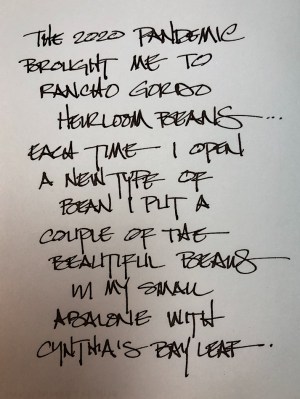 THE 2020 PANDEMIC
BROUGHT ME TO
RANCHO GORDO
HEIRLOOM BEANS...
EACH TIME I OPEN
A NEW TYPE OF
BEAN I PUT A
COUPLE OF THE
BEAUTIFUL BEANS
IN MY SMALL
ABALONE WITH
CYNTHIA'S BAY LEAF..